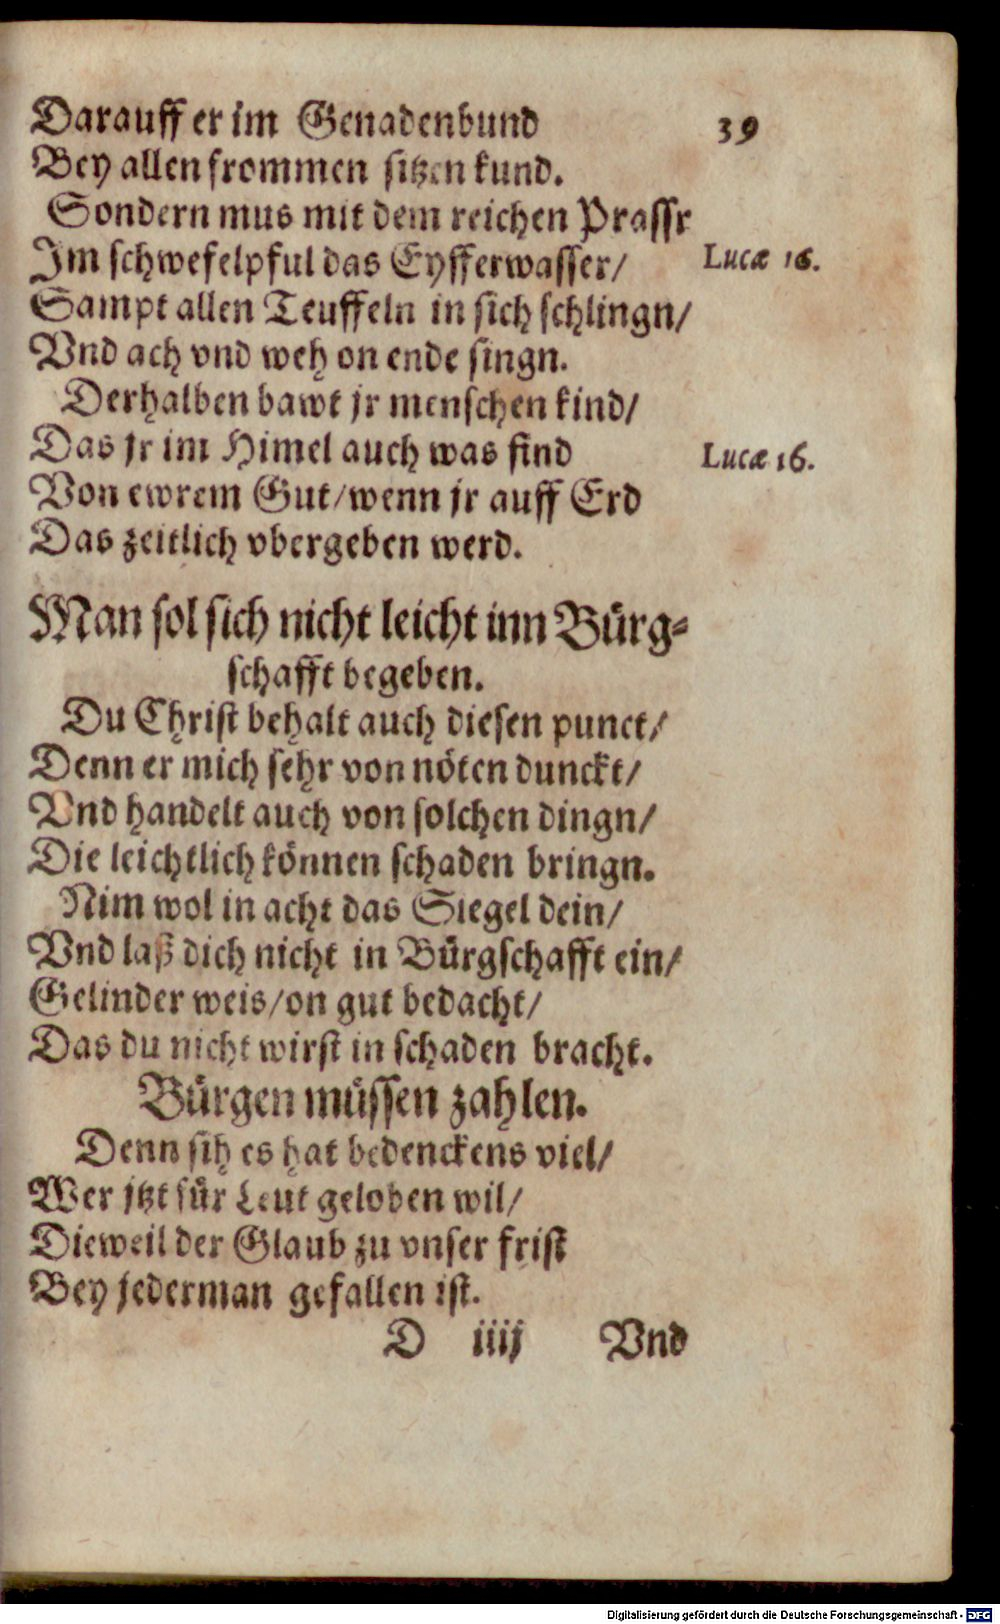 Darauff er im Genadenbund
39
Bey allen frommen sitzen kund.
Sondern mus mit dem reichen Prassr
Im schwefelpful das Eyfferwasser/
Lucæ 16.
Sampt allen Teuffeln in sich schlingn/
Vnd ach vnd weh on ende singn.
Derhalben bawt jr menschen kind/
Das jr im Himel auch was find
Lucæ 16.
Von ewrem Gut/wenn jr auff Erd
Das zeitlich vbergeben werd.
Man sol sich nicht leicht inn Bürg-
schafft begeben.
Du Christ behalt auch diesen punct/
Denn er mich sehr von nöten dunckt/
Vnd handelt auch von solchen dingn/
Die leichtlich können schaden bringn.
Nim wol in acht das Siegel dein/
Vnd laß dich nicht in Bürgschafft ein/
Gelinder weis/on gut bedacht/
Das du nicht wirst in schaden bracht.
Bürgen müssen zahlen.
Denn sih es hat bedenckens viel/
Wer jtzt für Leut geloben wil/
Dieweil der Glaub zu vnser frist
Bey jederman gefallen ist.
D iiij Vnd
Digitalisierung gefördert durch die Deutsche Forschungsgemeinschaft - DFG